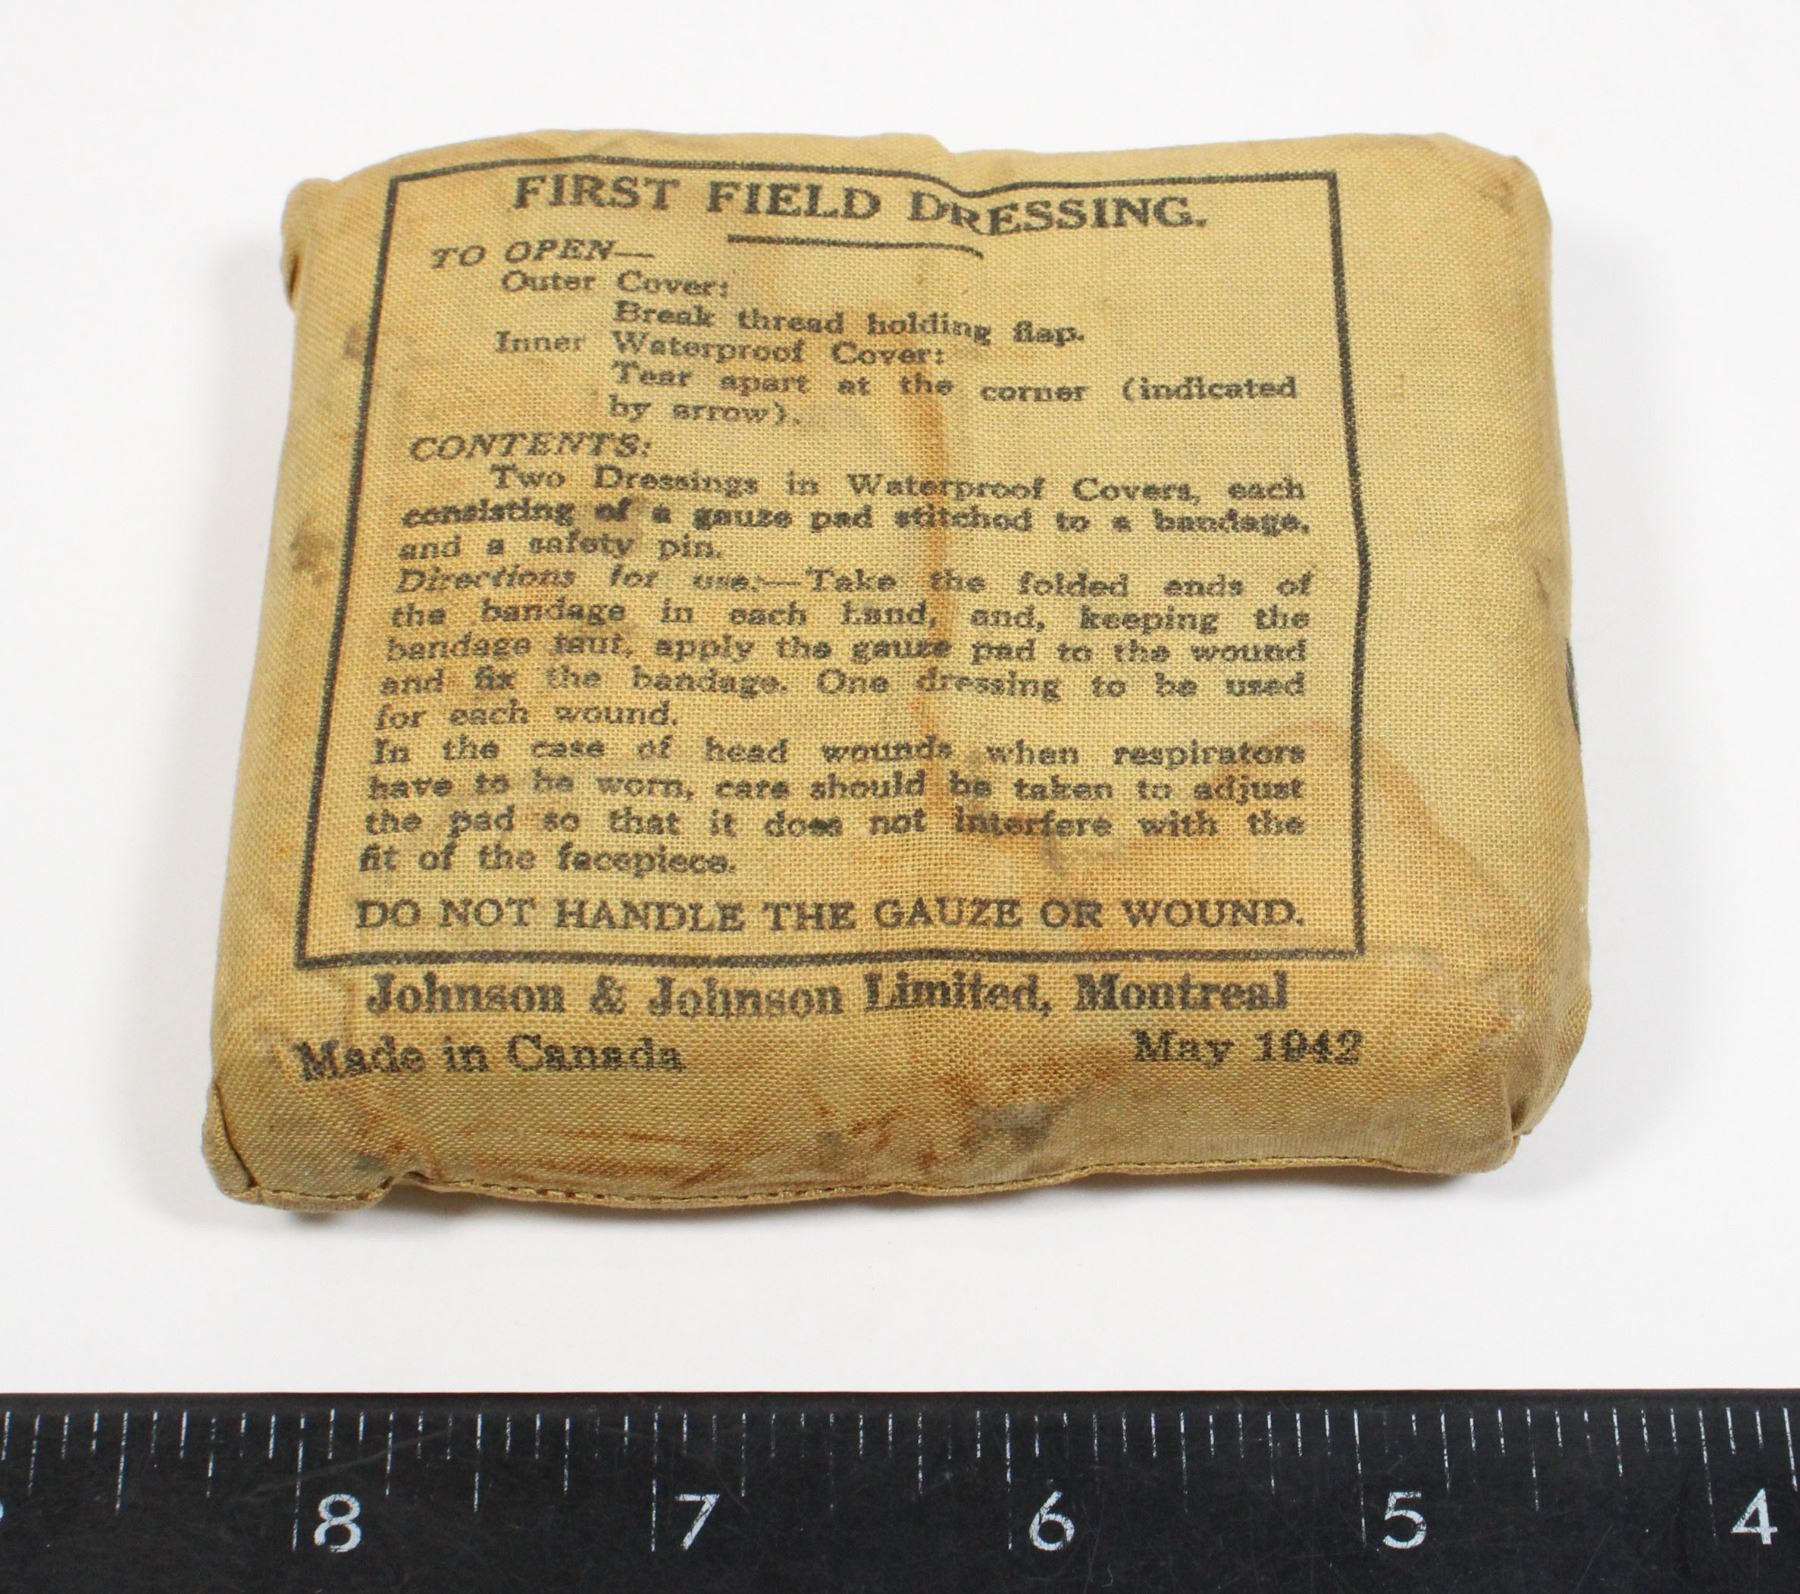 FIRST FIELD DRESSING.
TO OPEN—
Outer Cover:
Break thread holding flap.
Inner Waterproof Cover:
Tear apart at the corner (indicated
by arrow).
CONTENTS:
Two Dressings in Waterproof Covers, each
consisting of a gauze pad stitched to a bandage,
and a safety pin.
Directions for use:—Take the folded ends of
the bandage in each hand, and, keeping the
bandage taut, apply the gauze pad to the wound
and fix the bandage. One dressing to be used
for each wound.
In the case of head wounds when respirators
have to be worn, care should be taken to adjust
the pad so that it does not interfere with the
fit of the facepiece.
DO NOT HANDLE THE GAUZE OR WOUND.
Johnson & Johnson Limited, Montreal
Made in Canada May 1942
8 7 6 5 4